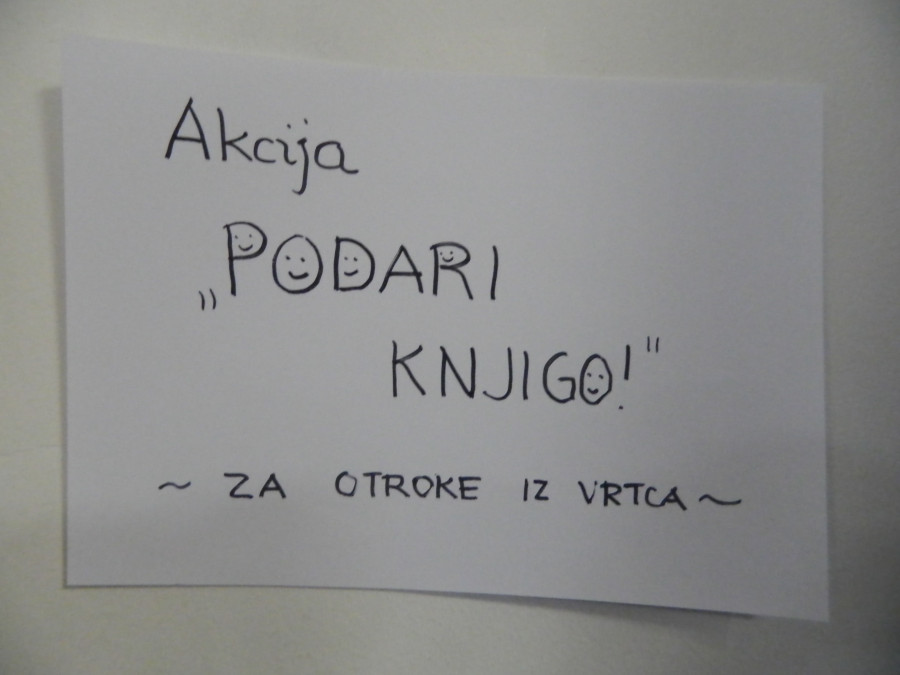 Akcija
„PODARI
KNJIGO!"
~ ZA OTROKE IZ VRTCA ~